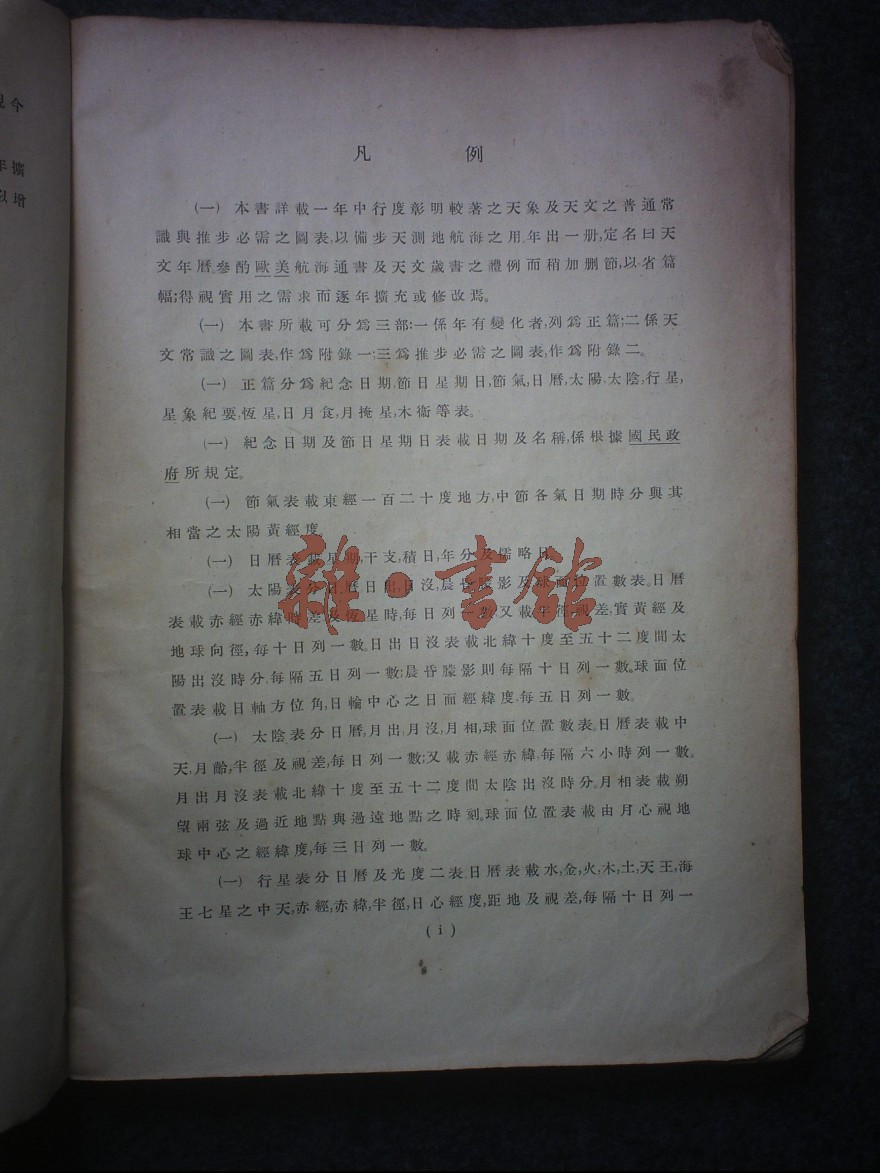 凡例
(一) 本書詳載一年中行度彰明較著之天象及天文之普通常
識與推步必需之圖表,以備步天測地航海之用.年出一册,定名曰天
文年曆.參酌歐美航海通書及天文歲書之禮例而稍加删節,以省篇
幅;得視實用之需求而逐年擴充或修改焉。
(一) 本書所載可分爲三部:一係年有變化者,列爲正篇;二係天
文常識之圖表,作爲附錄一;三爲推步必需之圖表,作爲附錄二。
(一) 正篇分爲紀念日期,節日星期日,節氣,日曆,太陽,太陰,行星,
星象紀要,恆星,日月食,月掩星,木衞等表。
(一) 紀念日期及節日星期日表載日期及名稱,係根據國民政
府所規定。
(一) 節氣表載東經一百二十度地方,中節各氣日期時分與其
相當之太陽黃經度
(一) 日曆表載星期,干支,積日,年分及儒略日
(一) 太陽表分日曆,日出,日沒,晨昏朦影及球面位置數表.日曆
表載赤經赤緯時差及恆星時,每日列一數,又載半徑,視差,實黃經及
地球向徑,每十日列一數.日出日沒表載北緯十度至五十二度間太
陽出沒時分,每隔五日列一數;晨昏朦影則每隔十日列一數.球面位
置表載日軸方位角,日輪中心之日面經緯度,每五日列一數。
(一) 太陰表分日曆,月出,月沒,月相,球面位置數表.日曆表載中
天,月齡,半徑及視差,每日列一數;又載赤經赤緯,每隔六小時列一數。
月出月沒表載北緯十度至五十二度間太陰出沒時分.月相表載朔
望兩弦及過近地點與過遠地點之時刻.球面位置表載由月心視地
球中心之經緯度,每三日列一數。
(一) 行星表分日曆及光度二表.日曆表載水,金,火,木,土,天王,海
王七星之中天,赤經,赤緯,半徑,日心經度,距地及視差,每隔十日列一
(i)
雜·書館